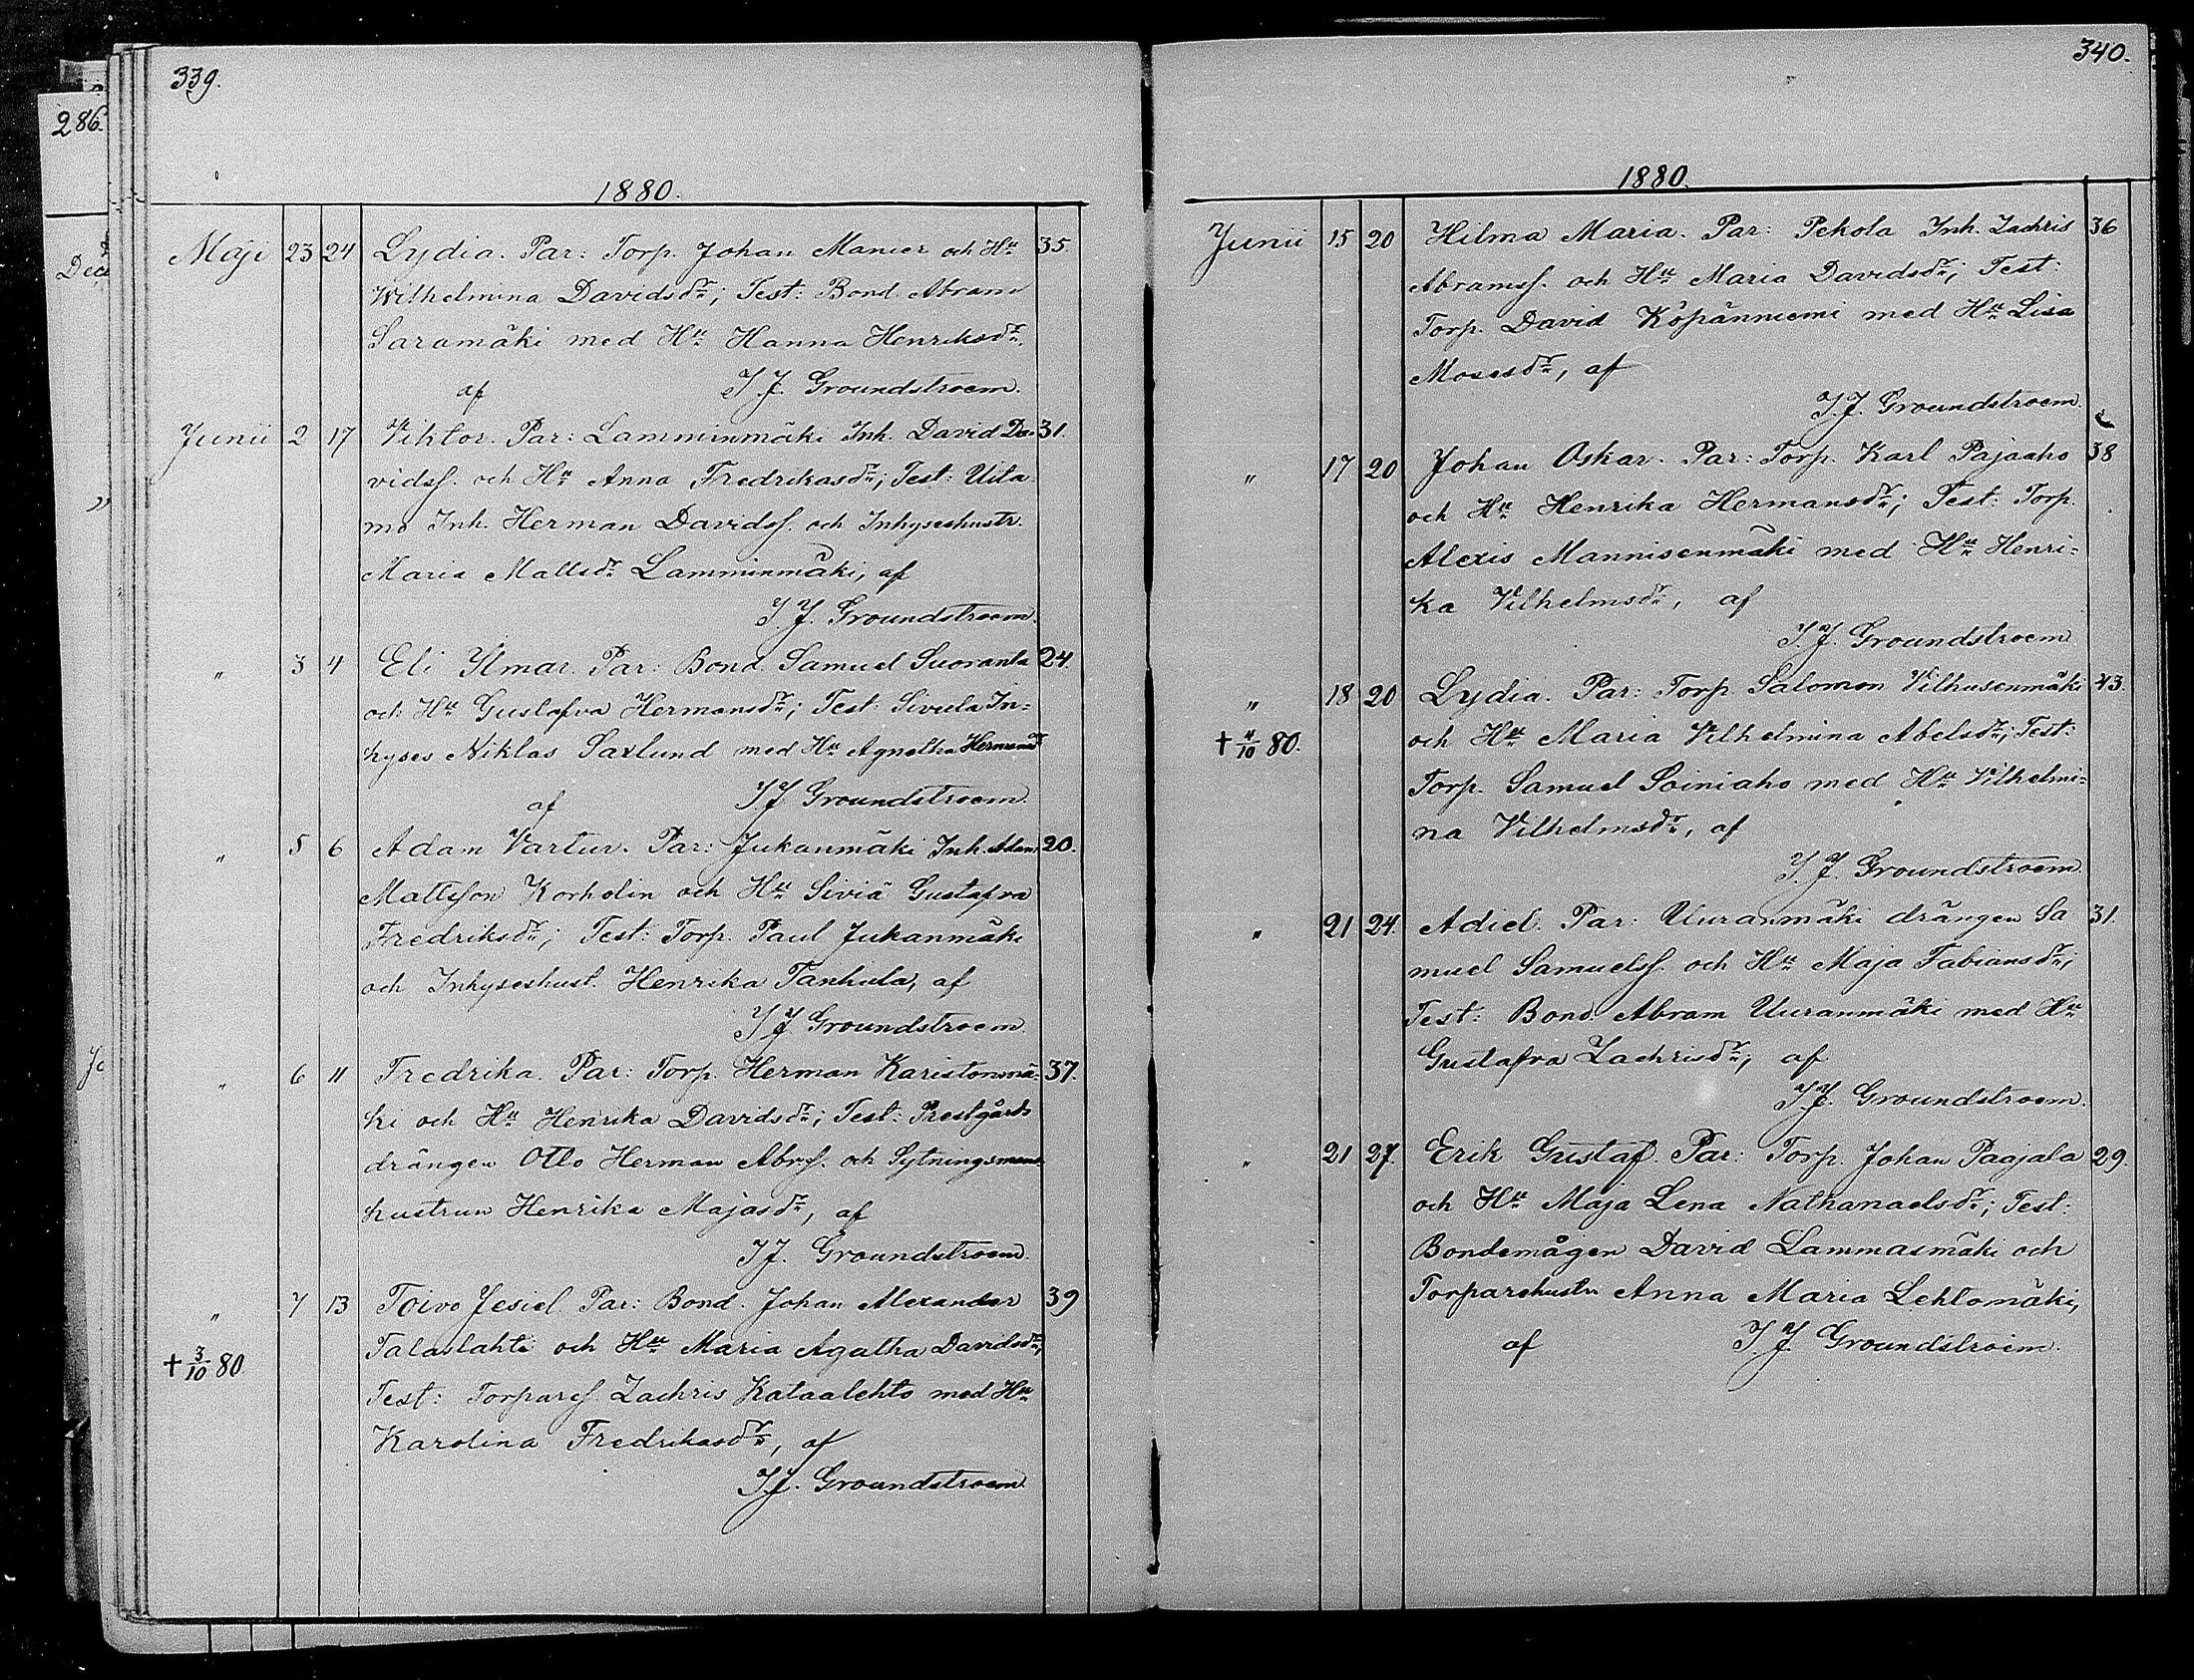 339.
286.
1880.
Maji 23 24 Lydia. Par: Torp. Johan Manier och Hu 35.
Wilhelmina Davidsdr; Test: Bond. Abram
Saramäki med Hu Hanna Henriksdr.
af I. J. Groundstroem.
Junii 2 17 Viktor. Par: Lamminmäki Inh. David Da- 31.
vidss. och Hu Anna Fredrikasdr; Test: Uita
mo Inh. Herman Davidss. och Inhyseshustr.
Maria Mattsdr Lamminmäki, af
I. J. Groundstroem.
" 3 4 Eli Ilmar. Par: Bond. Samuel Suoranta 24.
och Hu Gustafva Hermansdr; Test: Sivula In=
hyses Niklas Saxlund med Hu Agnetha Hermansdr
af I J. Groundstroem.
" 5 6 Adam Vartur. Par: Jukanmäki Inh. Adam 20.
Mattsson Korholin och Hu Siviä Gustafva
Fredriksdr; Test: Torp. Paul Jukanmäki
och Inhyseshust. Henrika Tanhula, af
I J Groundstroem.
" 6 11 Fredrika. Par: Torp. Herman Karistonmä- 37.
ki och Hu Henrika Davidsdr; Test: Prestgårds
drängen Otto Herman Abrss. och Sytningsmans
hustrun Henrika Majasdr, af
I J. Groundstroem.
" 7 13 Toivo Jesiel. Par: Bond. Johan Alexander 39
† 3/10 80. Talaslahti och Hu Maria Agatha Davidsdr;
Test: Torpares. Zachris Kataalehto med Hu
Karolina Fredrikasdr, af
I J. Groundstroem
340.
1880.
Junii 15 20 Hilma Maria. Par: Pekola Inh. Zachris 36
Abramss. och Hu Maria Davidsdr; Test:
Torp. David Köpänniemi med Hu Lisa
Mosesdr, af
I. J. Groundstroem.
" 17 20 Johan Oskar. Par: Torp. Karl Pajaaho 38
och Hu Henrika Hermansdr; Test: Torp.
Alexis Mannisenmäki med Hu Henri=
ka Vilhelmsdr, af
I. J. Groundstroem
" 18 20 Lydia. Par: Torp. Salomon Vilhusenmäki 43.
† 11/10 80. och Hu Maria Vilhelmina Abelsdr; Test:
Torp. Samuel Soiniaho med Hu Vilhelmi=
na Vilhelmsdr, af
I. J. Groundstroem
" 21 24. Adiel. Par: Uuranmäki drängen Sa 31.
muel Samuelss. och Hu Maja Fabiansdr;
Test: Bond. Abram Uuranmäki med Hu
Gustafva Zachrisdr, af
I J. Groundstroem.
" 21 27. Erik Gustaf. Par: Torp. Johan Paajala 29.
och Hu Maja Lena Nathanaelsdr; Test:
Bondemågen David Lammasmäki och
Torparehustr Anna Maria Lehtomäki,
af I. J. Groundstroem.